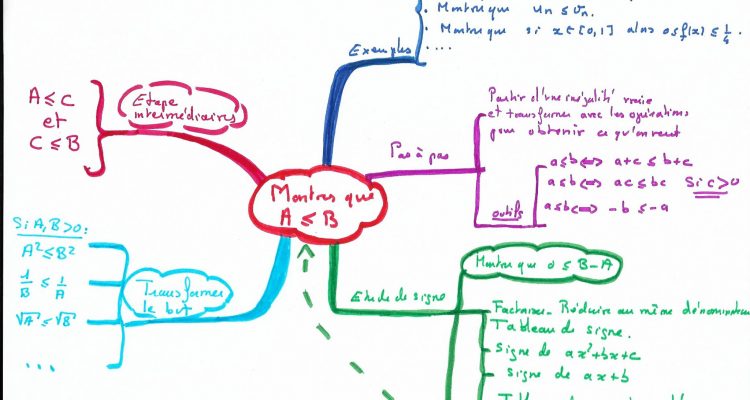 . Montrer que un ≤ vn.
. Montrer que si x ∈ [0,1] alors 0 ≤ f(x) ≤ 1/4.
....
Exemples
A ≤ C
et
C ≤ B
Etape
intermédiaires
Pas à pas
Partir d'une inégalité vraie
et transformer avec les opérations
pour obtenir ce qu'on veut
outils
a≤b ⟺ a+c ≤ b+c
a≤b ⟺ ac ≤ bc Si c>0
a≤b ⟺ -b ≤ -a
Montrer que
A ≤ B
Si A, B >0:
A² ≤ B²
1/B ≤ 1/A
√A ≤ √B
...
Transformer
le but
Etude de signe
Montrer que 0 ≤ B-A
Factoriser - Réduire au même dénominateur
Tableau de signe.
Signe de ax²+bx+c
signe de ax+b